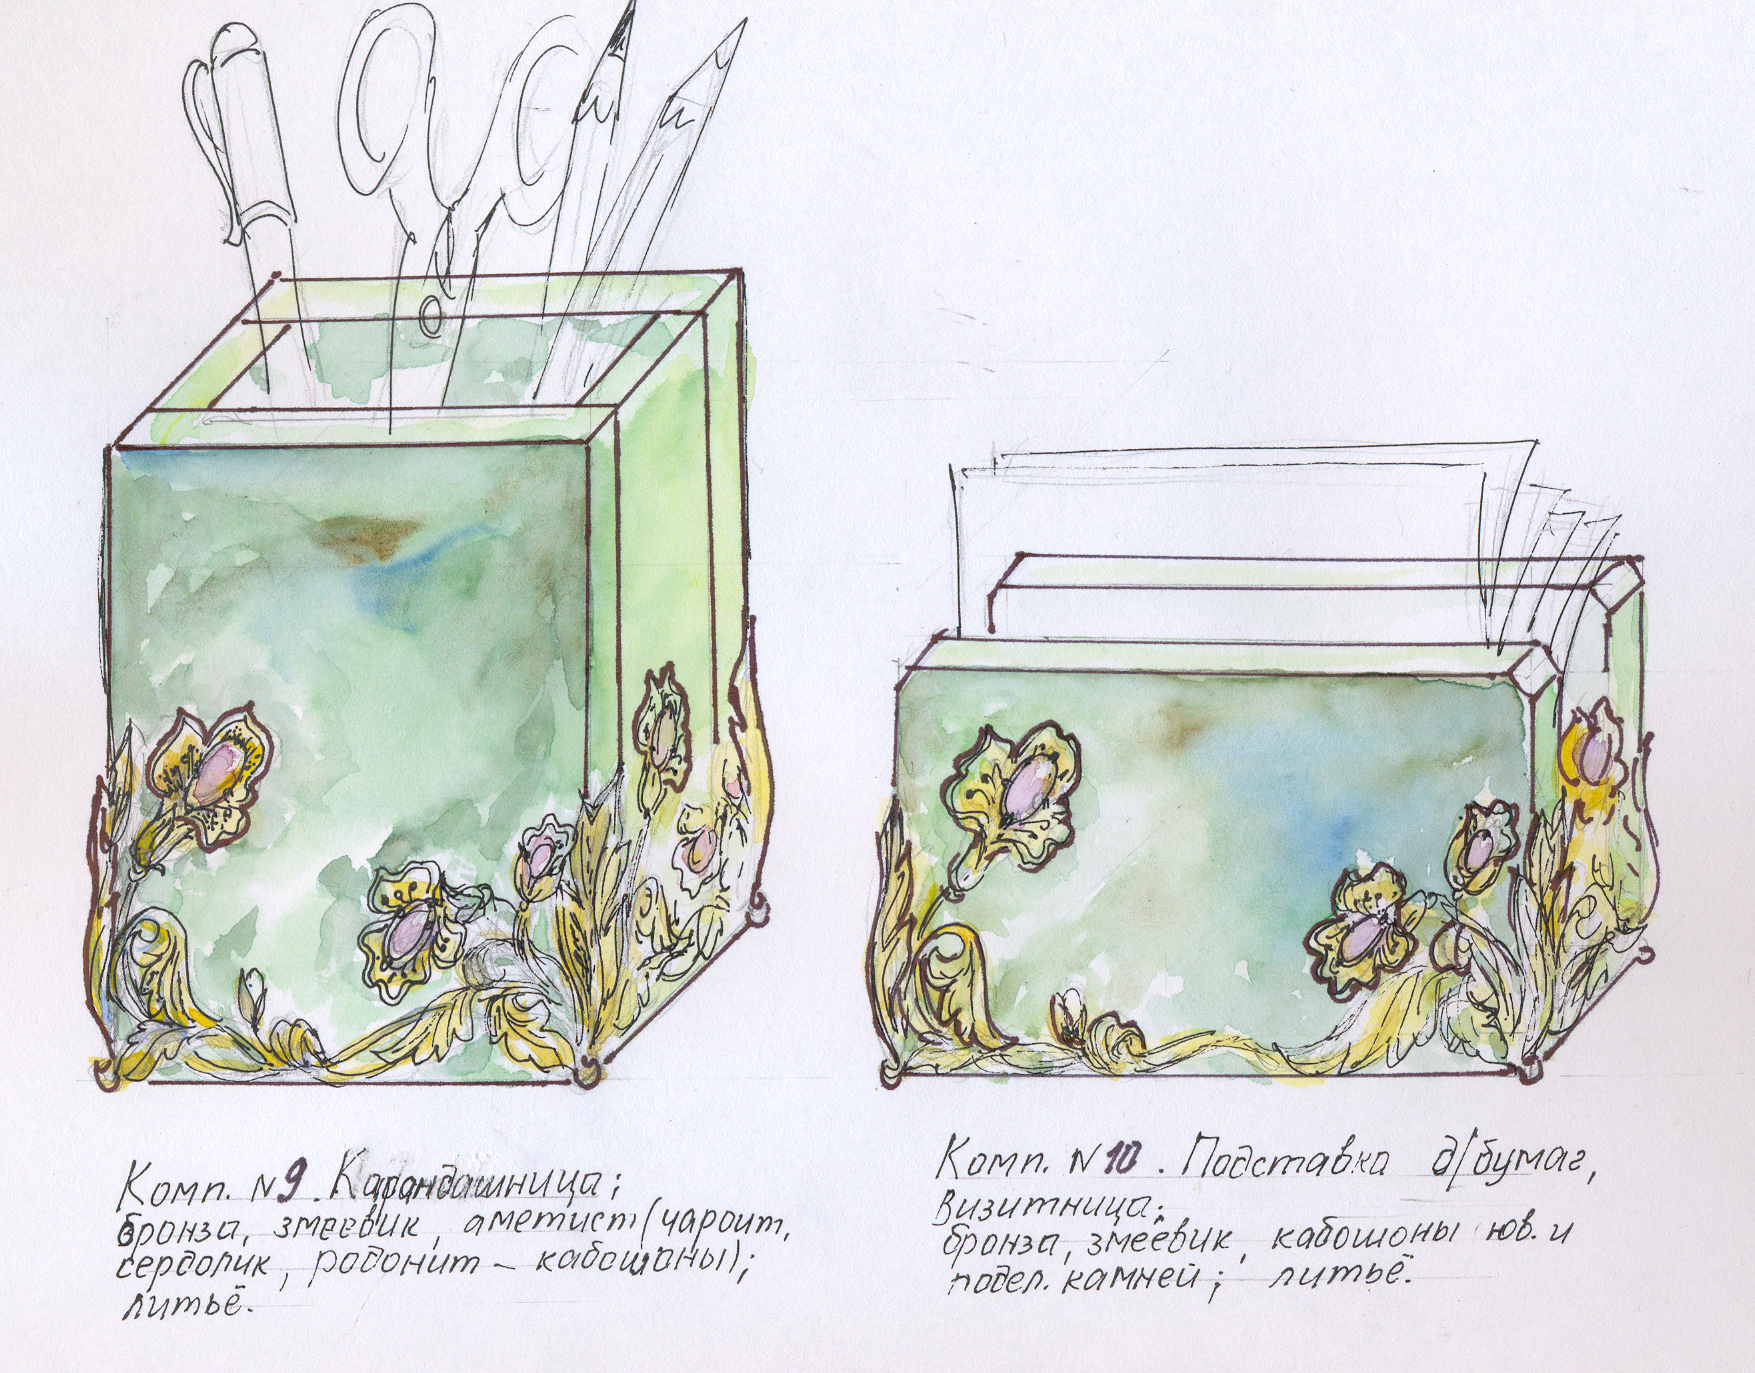 Комп. N9. Карандашница;
бронза, змеевик, аметист (чароит,
сердолик, родонит – кабошоны);
литьё.
Комп. N10. Подставка д/бумаг,
визитница;
бронза, змеевик, кабошоны юв. и
подел. камней; литьё.